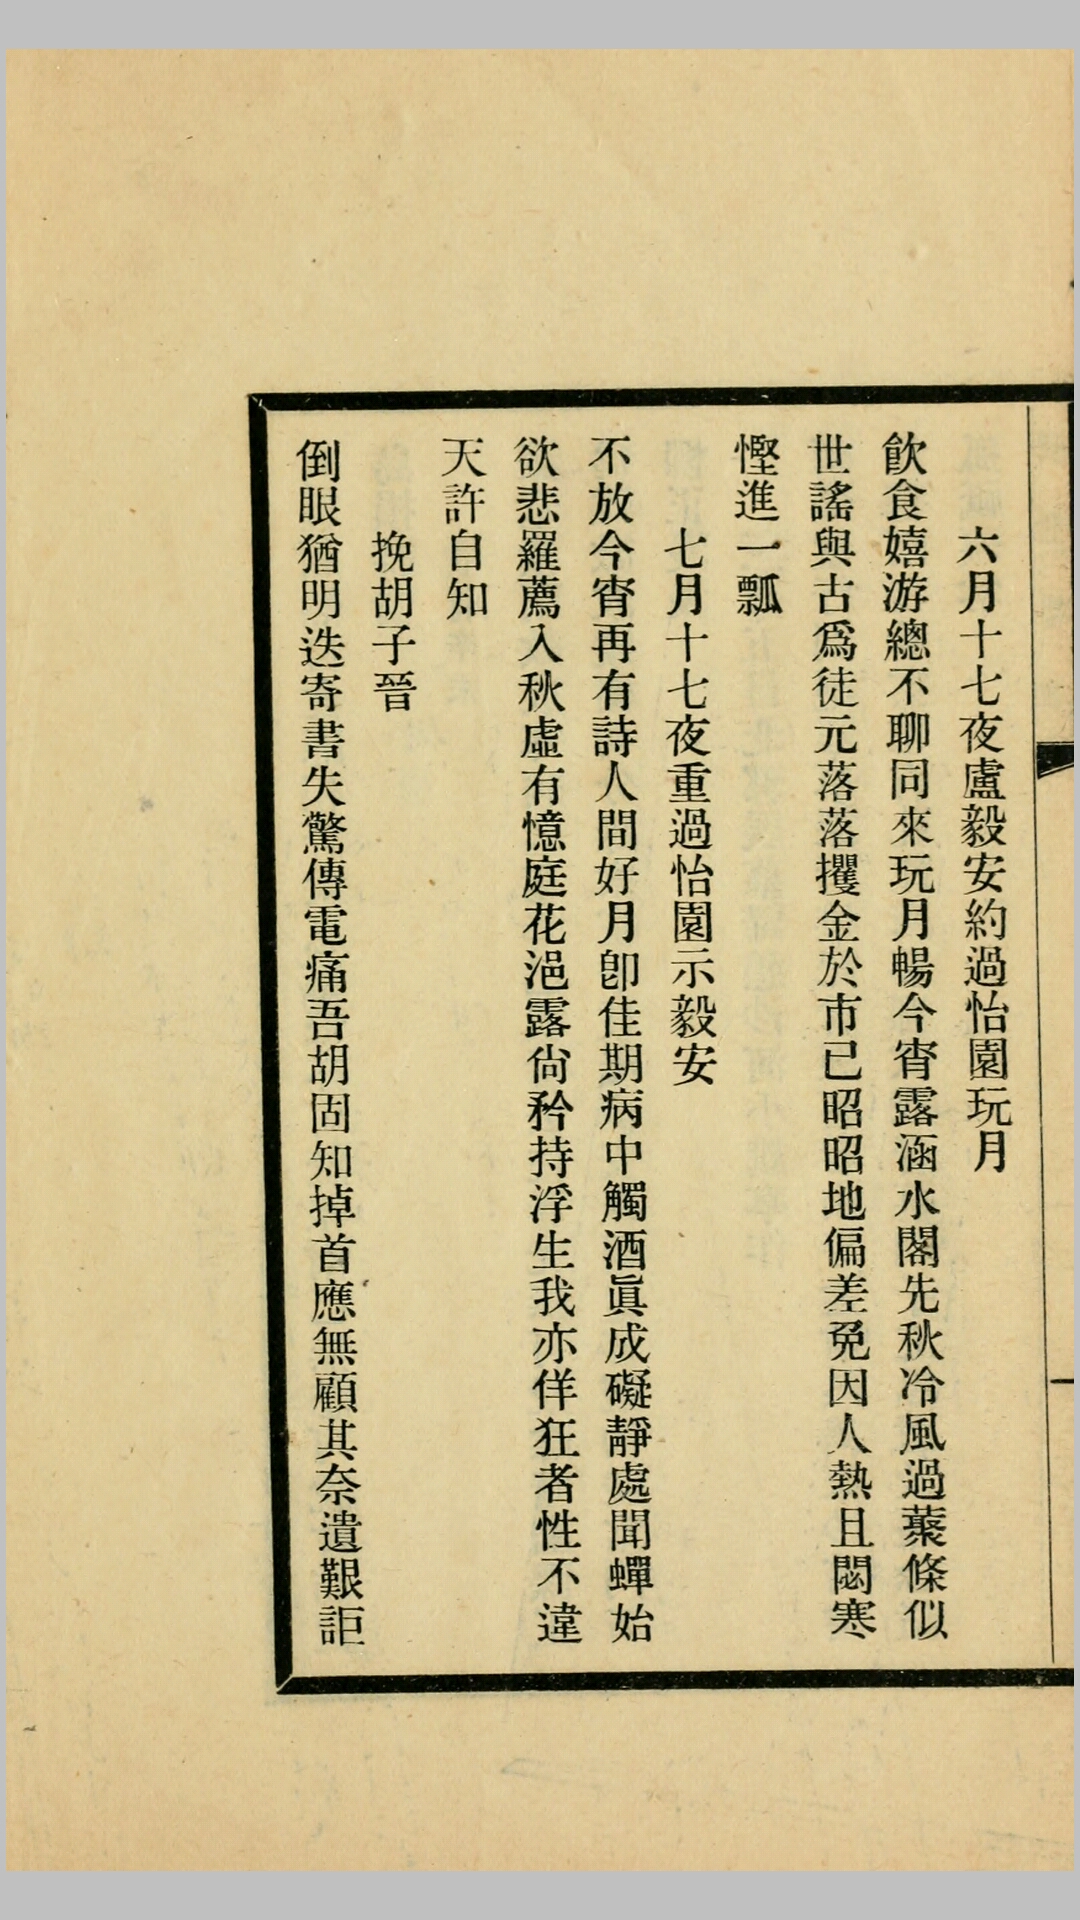 六月十七夜盧毅安約過怡園玩月
飲食嬉游總不聊同來玩月暢今宵露涵水閣先秋冷風過藂條似
世謠與古爲徒元落落攫金於市已昭昭地偏差免因人熱且閟寒
慳進一瓢
七月十七夜重過怡園示毅安
不放今宵再有詩人間好月卽佳期病中觸酒眞成礙靜處聞蟬始
欲悲羅薦入秋虛有憶庭花浥露尙矜持浮生我亦佯狂者性不違
天許自知
挽胡子晉
倒眼猶明迭寄書失驚傳電痛吾胡固知掉首應無顧其奈遺艱詎